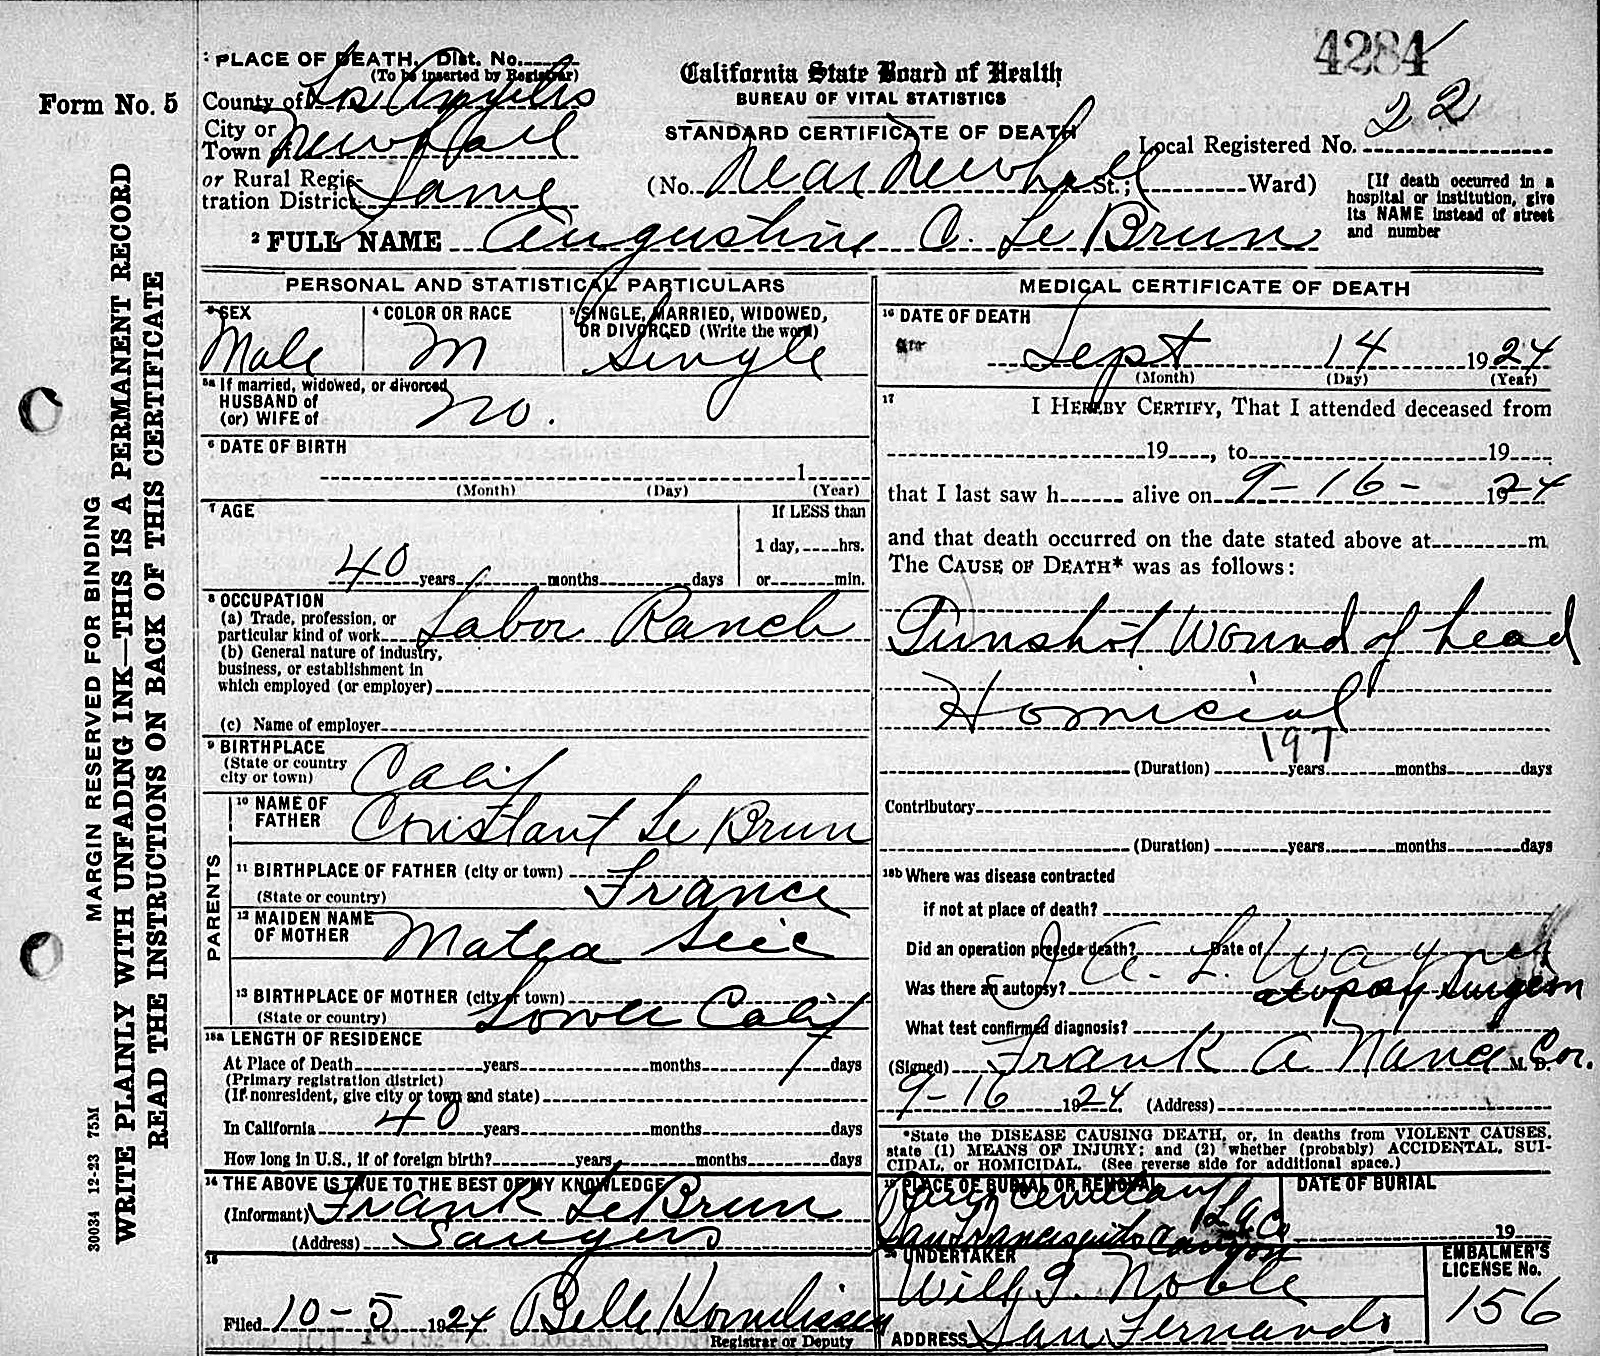 4284
Form No. 5
MARGIN RESERVED FOR BINDING
WRITE PLAINLY WITH UNFADING INK—THIS IS A PERMANENT RECORD
READ THE INSTRUCTIONS ON BACK OF THIS CERTIFICATE
30034 12-23 75M
1 PLACE OF DEATH. Dist. No.
(To be inserted by Registrar)
County of Los Angeles
City or Town of Newhall
or Rural Registration District Same
California State Board of Health
BUREAU OF VITAL STATISTICS
STANDARD CERTIFICATE OF DEATH
Local Registered No. 22
(No. Near Newhall St.; Ward)
[If death occurred in a
hospital or institution, give
its NAME instead of street
and number
2 FULL NAME Augustine C. Le Brun
PERSONAL AND STATISTICAL PARTICULARS
SEX
Male
4 COLOR OR RACE
M
5 SINGLE, MARRIED, WIDOWED,
OR DIVORCED (Write the word)
Single
5a If married, widowed, or divorced
HUSBAND of
(or) WIFE of
no.
6 DATE OF BIRTH
1
(Month) (Day) (Year)
7 AGE
40 years months days
If LESS than
1 day, hrs.
or min.
8 OCCUPATION
(a) Trade, profession, or
particular kind of work Labor Ranch
(b) General nature of industry,
business, or establishment in
which employed (or employer)
(c) Name of employer
9 BIRTHPLACE
(State or country
city or town)
Calif
PARENTS
10 NAME OF
FATHER
Constant Le Brun
11 BIRTHPLACE OF FATHER (city or town)
(State or country) France
12 MAIDEN NAME
OF MOTHER
Matea
13 BIRTHPLACE OF MOTHER (city or town)
(State or country) Lower Calif
LENGTH OF RESIDENCE
At Place of Death years months 7 days
(Primary registration district)
(If nonresident, give city or town and state)
In California 40 years months days
How long in U.S., if of foreign birth? years months days
14 THE ABOVE IS TRUE TO THE BEST OF MY KNOWLEDGE
(Informant) Frank Le Brun
(Address) Saugers
15
Filed 10-5 1924 Belle Kornelissen
Registrar or Deputy
MEDICAL CERTIFICATE OF DEATH
16 DATE OF DEATH
Sept 14 1924
(Month) (Day) (Year)
17 I HEREBY CERTIFY, That I attended deceased from
19 , to 19
that I last saw h alive on 9-16- 1924
and that death occurred on the date stated above at m
The CAUSE OF DEATH* was as follows:
Gunshot Wound of head
Homicial
197
(Duration) years months days
Contributory
(Duration) years months days
18b Where was disease contracted
if not at place of death?
Did an operation precede death? Date of
Was there an autopsy?
A. L. Wagner
atopsy surgeon
What test confirmed diagnosis?
(Signed) Frank A Nance M. D. Cor.
9-16 1924 (Address)
*State the DISEASE CAUSING DEATH, or, in deaths from VIOLENT CAUSES,
state (1) MEANS OF INJURY; and (2) whether (probably) ACCIDENTAL, SUI-
CIDAL, or HOMICIDAL. (See reverse side for additional space.)
19 PLACE OF BURIAL OR REMOVAL
L A Co
San Francisquito Canyon
DATE OF BURIAL
19
20 UNDERTAKER
Will G. Noble
ADDRESS San Fernando
EMBALMER'S
LICENSE No.
156